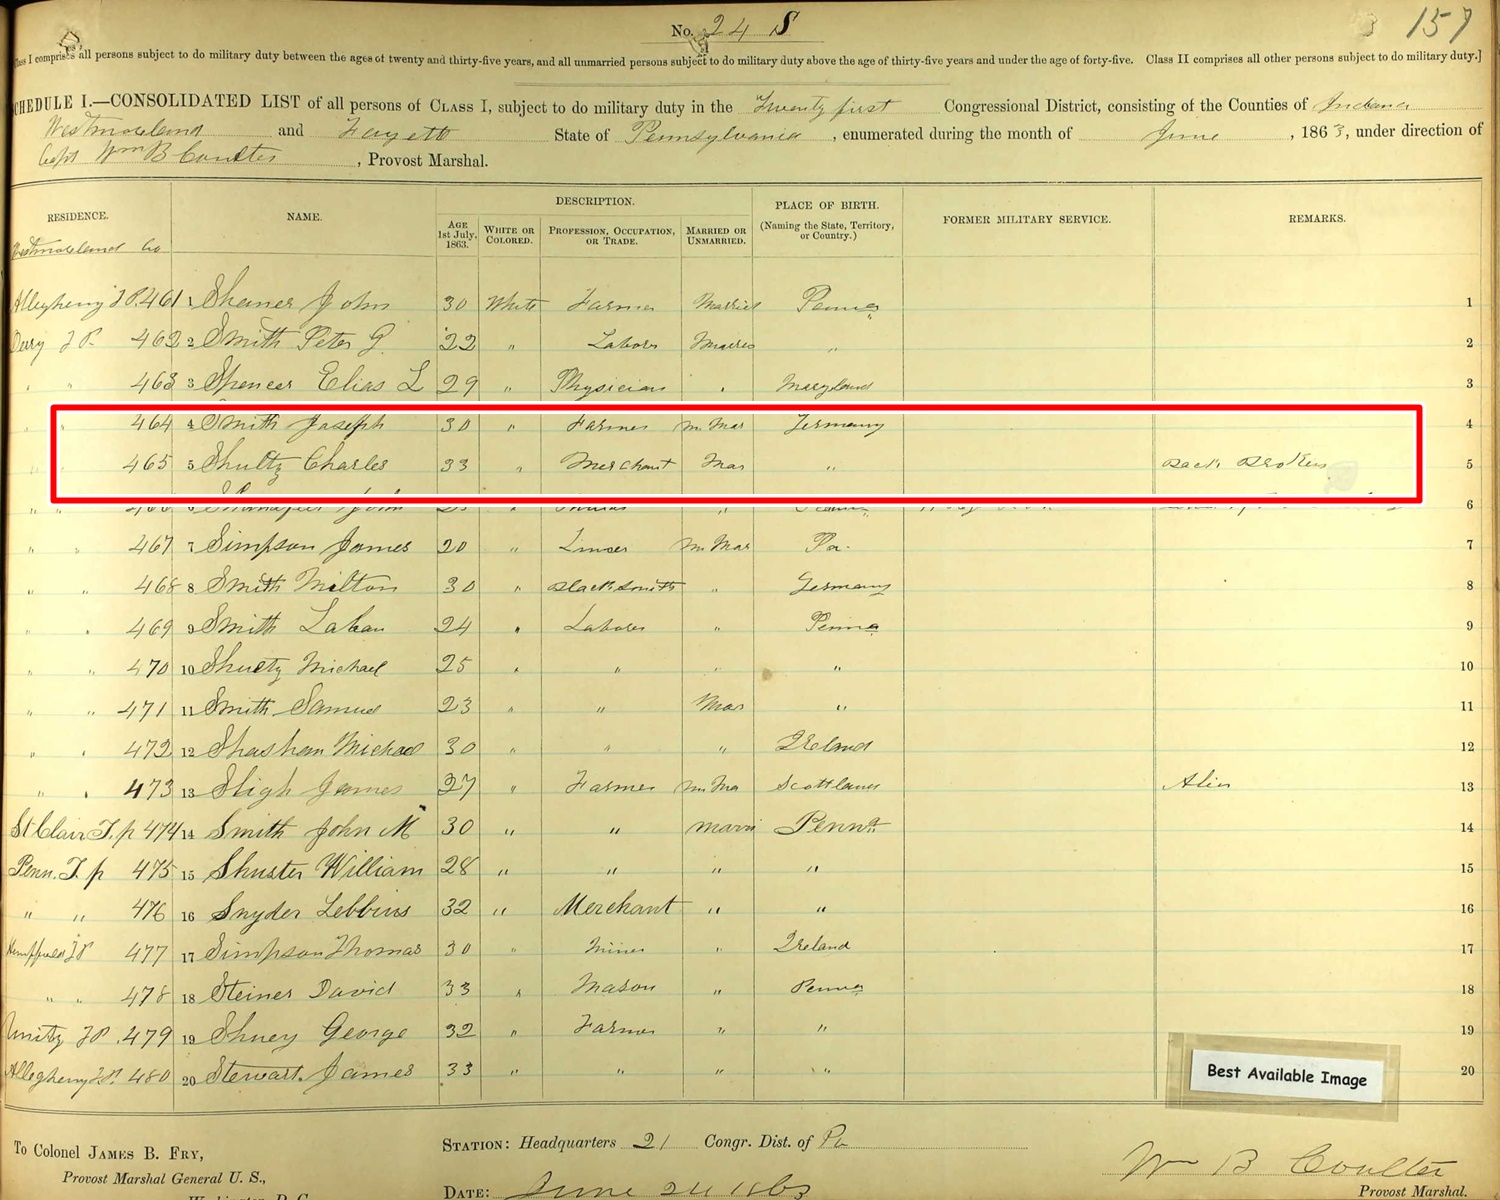 No. 24 S
157
Class I comprises all persons subject to do military duty between the ages of twenty and thirty-five years, and all unmarried persons subject to do military duty above the age of thirty-five years and under the age of forty-five. Class II comprises all other persons subject to do military duty.]
SCHEDULE I.—CONSOLIDATED LIST of all persons of CLASS I, subject to do military duty in the Twenty first Congressional District, consisting of the Counties of Indiana
Westmoreland and Fayette State of Pennsylvania, enumerated during the month of June, 1863, under direction of
Capt Wm B Coulter, Provost Marshal.
RESIDENCE. NAME. DESCRIPTION. PLACE OF BIRTH. FORMER MILITARY SERVICE. REMARKS.
AGE 1st July, 1863. WHITE OR COLORED. PROFESSION, OCCUPATION, OR TRADE. MARRIED OR UNMARRIED. (Naming the State, Territory, or Country.)
Westmoreland Co
Allegheny T P. 461 1 Shaner John 30 White Farmer Married Penna 1
Derry T P. 462 2 Smith Peter G 22 " Labor Married " 2
" " 463 3 Spencer Elias L 29 " Physician " Maryland 3
" " 464 4 Smith Joseph 30 " Farmer Un Mar Germany 4
" " 465 5 Shultz Charles 33 " Merchant Mar " Back Broken 5
" " 466 6 John 6
" " 467 7 Simpson James 20 " Un Mar Pa. 7
" " 468 8 Smith Milton 30 " Blacksmith " Germany 8
" " 469 9 Smith Laban 24 " Labor " Penna 9
" " 470 10 Michael 25 " " " " 10
" " 471 11 Smith Samuel 23 " " Mar " 11
" " 472 12 Michael 30 " " " Ireland 12
" " 473 13 Sligh James 27 " Farmer Un Ma Scotland Alien 13
St Clair T. p 474 14 Smith John M 30 " " Marri Penna 14
Penn. T. p 475 15 Shuster William 28 " " " " 15
" " 476 16 Snyder Lebbius 32 " Merchant " " 16
Hempfield T P 477 17 Simpson Thomas 30 " Miner " Ireland 17
" " 478 18 Steiner David 33 " Mason " Penna 18
Unity T P. 479 19 Shuey George 32 " Farmer " " 19
Allegheny T P. 480 20 Stewart James 33 " " " " 20
Best Available Image
To Colonel JAMES B. FRY,
Provost Marshal General U. S.,
Washington, D. C.
STATION: Headquarters 21 Congr. Dist. of Pa
DATE: June 24 1863
Wm B Coulter
Provost Marshal.